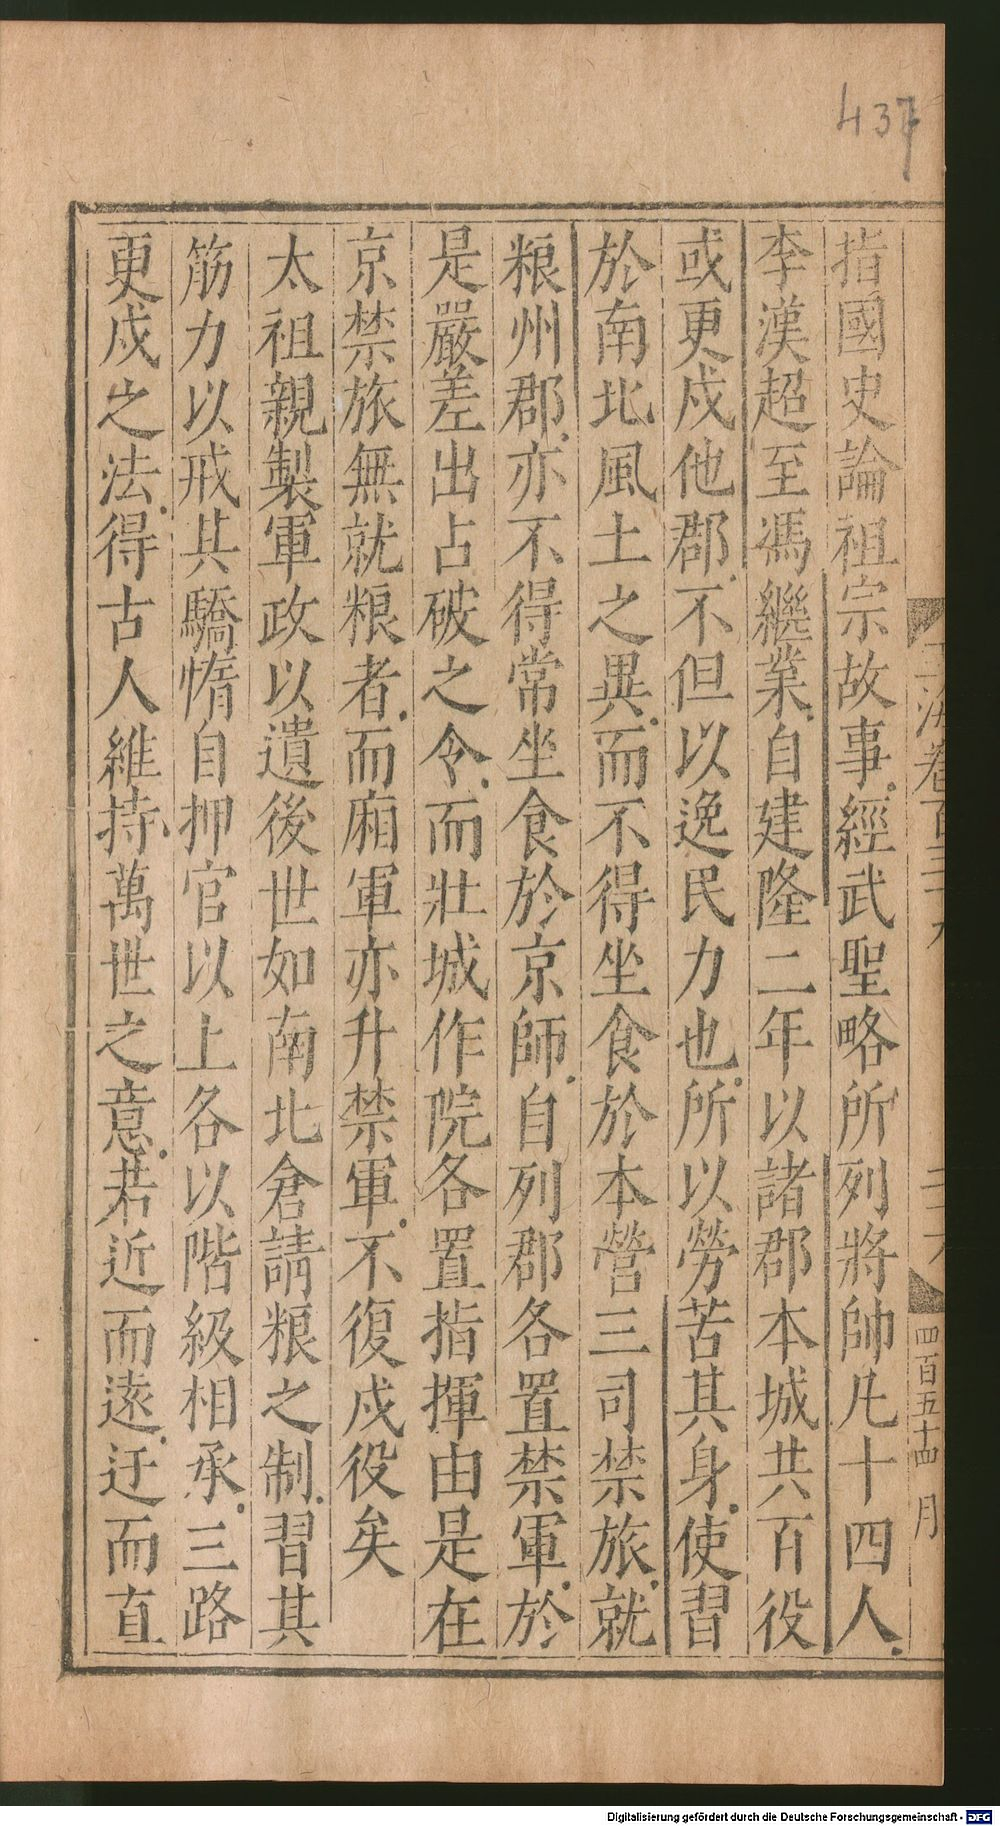 437
玉海卷百三十九
二十六
四百五十四 月
指國史論祖宗故事經武聖略所列將帥凡十四人
李漢超至馮繼業自建隆二年以諸郡本城共百役
或更戍他郡不但以逸民力也所以勞苦其身使習
於南北風土之異而不得坐食於本營三司禁旅就
粮州郡亦不得常坐食於京師自列郡各置禁軍於
是嚴差出占破之令而壯城作院各置指揮由是在
京禁旅無就粮者而廂軍亦升禁軍不復戍役矣
太祖親製軍政以遺後世如南北倉請粮之制習其
筋力以戒其驕惰自押官以上各以階級相承三路
更戍之法得古人維持萬世之意若近而遠迂而直
Digitalisierung gefördert durch die Deutsche Forschungsgemeinschaft - DFG